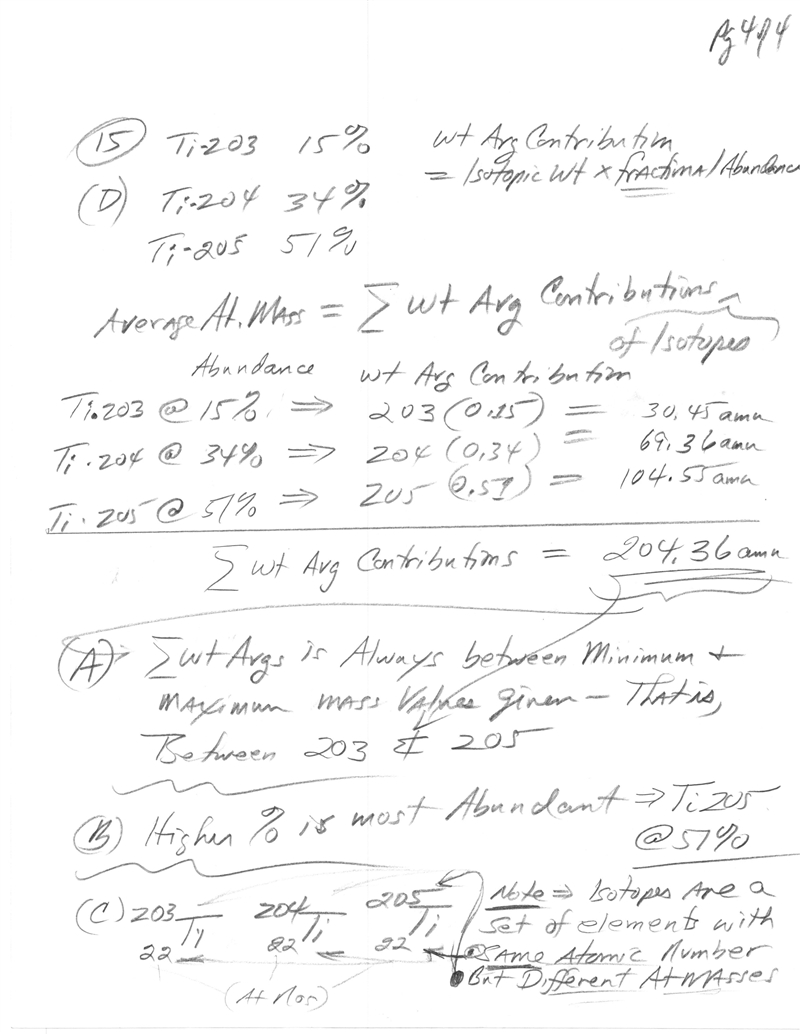 Pg 4 of 4
(15) Ti-203 15% wt Avg Contribution
(D) Ti-204 34% = Isotopic Wt × fractional Abundance
Ti-205 51%
Average At. Mass = ∑ wt Avg Contributions
of Isotopes
Abundance wt Avg Contribution
Ti-203 @ 15% ⇒ 203(0.15) = 30.45 amu
Ti-204 @ 34% ⇒ 204(0.34) = 69.36 amu
Ti-205 @ 51% ⇒ 205(0.51) = 104.55 amu
∑ wt Avg Contributions = 204.36 amu
(A) ∑ wt Avgs is Always between Minimum +
maximum mass Values given – That is,
Between 203 & 205
(B) Higher % is most Abundant ⇒ Ti 205
@ 51%
(C) 203 Ti 204 Ti 205 Ti Note ⇒ Isotopes Are a
set of elements with
22 22 22 • SAME Atomic Number
(At Nos) • But Different At MAsses